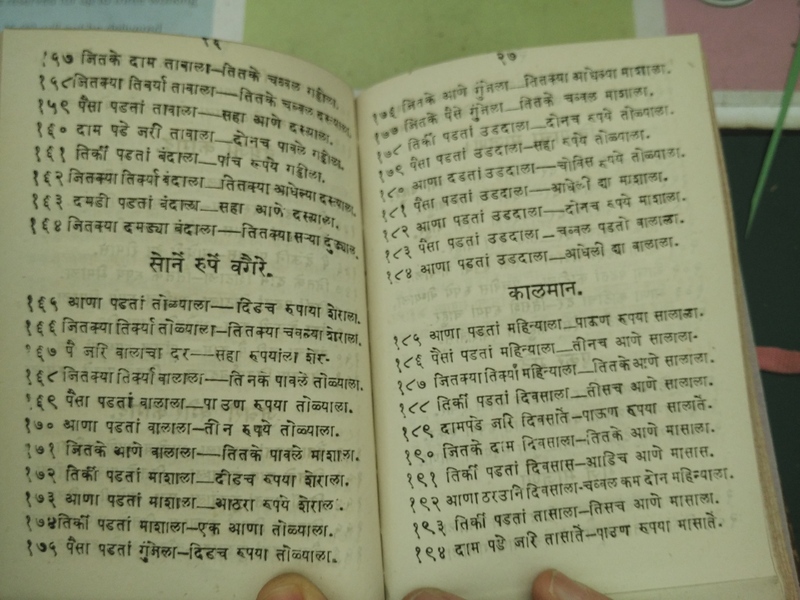 २६
१५७ जितके दाम तावाला—तितके चव्वल गड्डीला.
१५८ जितक्या तिर्क्या तावाला—तितके चव्वल दस्त्याला.
१५९ पैसा पडतां तावाला—सहा आणे दस्त्याला.
१६० दाम पडे जरी तावाला—दोनच पावले गड्डीला.
१६१ तिर्की पडतां बंदाला—पांच रुपये गड्डीला.
१६२ जितक्या तिर्क्या बंदाला—तितक्या आधेल्या दस्त्याला.
१६३ दमडी पडतां बंदाला—सहा आणे दस्त्याला.
१६४ जितक्या दमड्या बंदाला—तितक्या सऱ्या
सोनें रुपें वगैरे.
१६५ आणा पडतां तोळ्याला—दिडच रुपाया शेराला.
१६६ जितक्या तिर्क्या तोळ्याला—तितक्या चवल्या शेराला.
१६७ पै जरि वालाचा दर—सहा रुपयांला शेर.
१६८ जितक्या तिर्क्या वालाला—तितके पावले तोळ्याला.
१६९ पैसा पडतां वालाला—पाउण रुपया तोळ्याला.
१७० आणा पडतां वालाला—तीन रुपये तोळ्याला.
१७१ जितके आणे वालाला—तितके पावले माशाला.
१७२ तिर्की पडतां माशाला—दीडच रुपया शेराला.
१७३ आणा पडतां माशाला—आठरा रुपये शेराला.
१७४ तिर्की पडतां माशाला—एक आणा तोळ्याला.
१७५ पैसा पडतां गुंजेला—दिडच रुपया तोळ्याला.
२७
१७६ जितके आणे गुंजेला—तितक्या आधेल्या माशाला.
१७७ जितके पैसे गुंजेला—तितके चव्वल माशाला.
१७८ तिर्की पडतां उडदाला—दोनच रुपये तोळ्याला.
१७९ पैसा पडतां उडदाला—सहा रुपये तोळ्याला.
१८० आणा दडतां उडदाला—चोविस रुपये तोळ्याला.
१८१ पैसा पडतां उडदाला—आधेली द्या माशाला.
१८२ आणा पडतां उडदाला—दोनच रुपये माशाला.
१८३ पैसा पडतां उडदाला—चव्वल पडतो वालाला
१८४ आणा पडतां उडदाला—आधेली द्या वालाला.
कालमान.
१८५ आणा पडतां महिन्याला—पाऊण रुपया सालाला
१८६ पैसां पडतां महिन्याला—तीनच आणे सालाला.
१८७ जितक्या तिर्क्या महिन्याला—तितके आणे सालाला.
१८८ तिर्की पडतां दिवसाला—तीसच आणे सालाला.
१८९ दामपडे जरि दिवसातें—पाऊण रुपया सालातें.
१९० जितके दाम दिवसाला—तितके आणे मासाला.
१९१ तिर्की पडतां दिवसास—आडिच आणे मासास.
१९२ आणा ठरउनि दिवसाला-चव्वल कम दोन महिन्याला.
१९३ तिर्की पडतां तासाला—तिसच आणे मासाला.
१९४ दाम पडे जरि तासातें—पाउण रुपया मासातें.